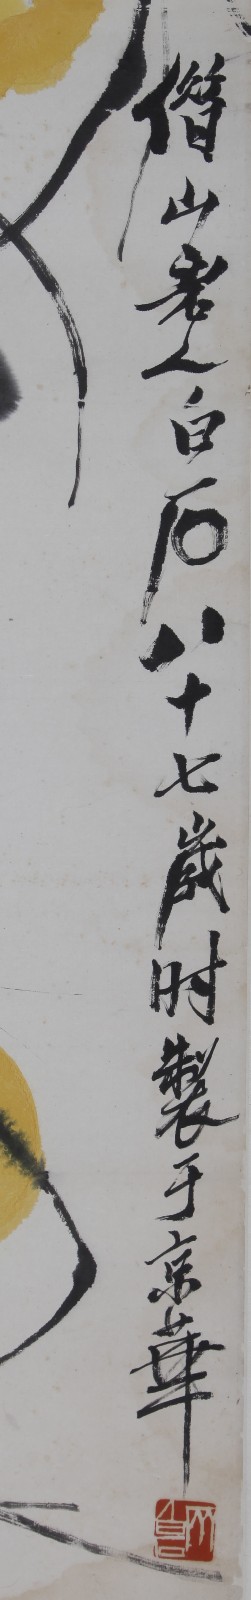 借山老人白石八十七歲时製于京華